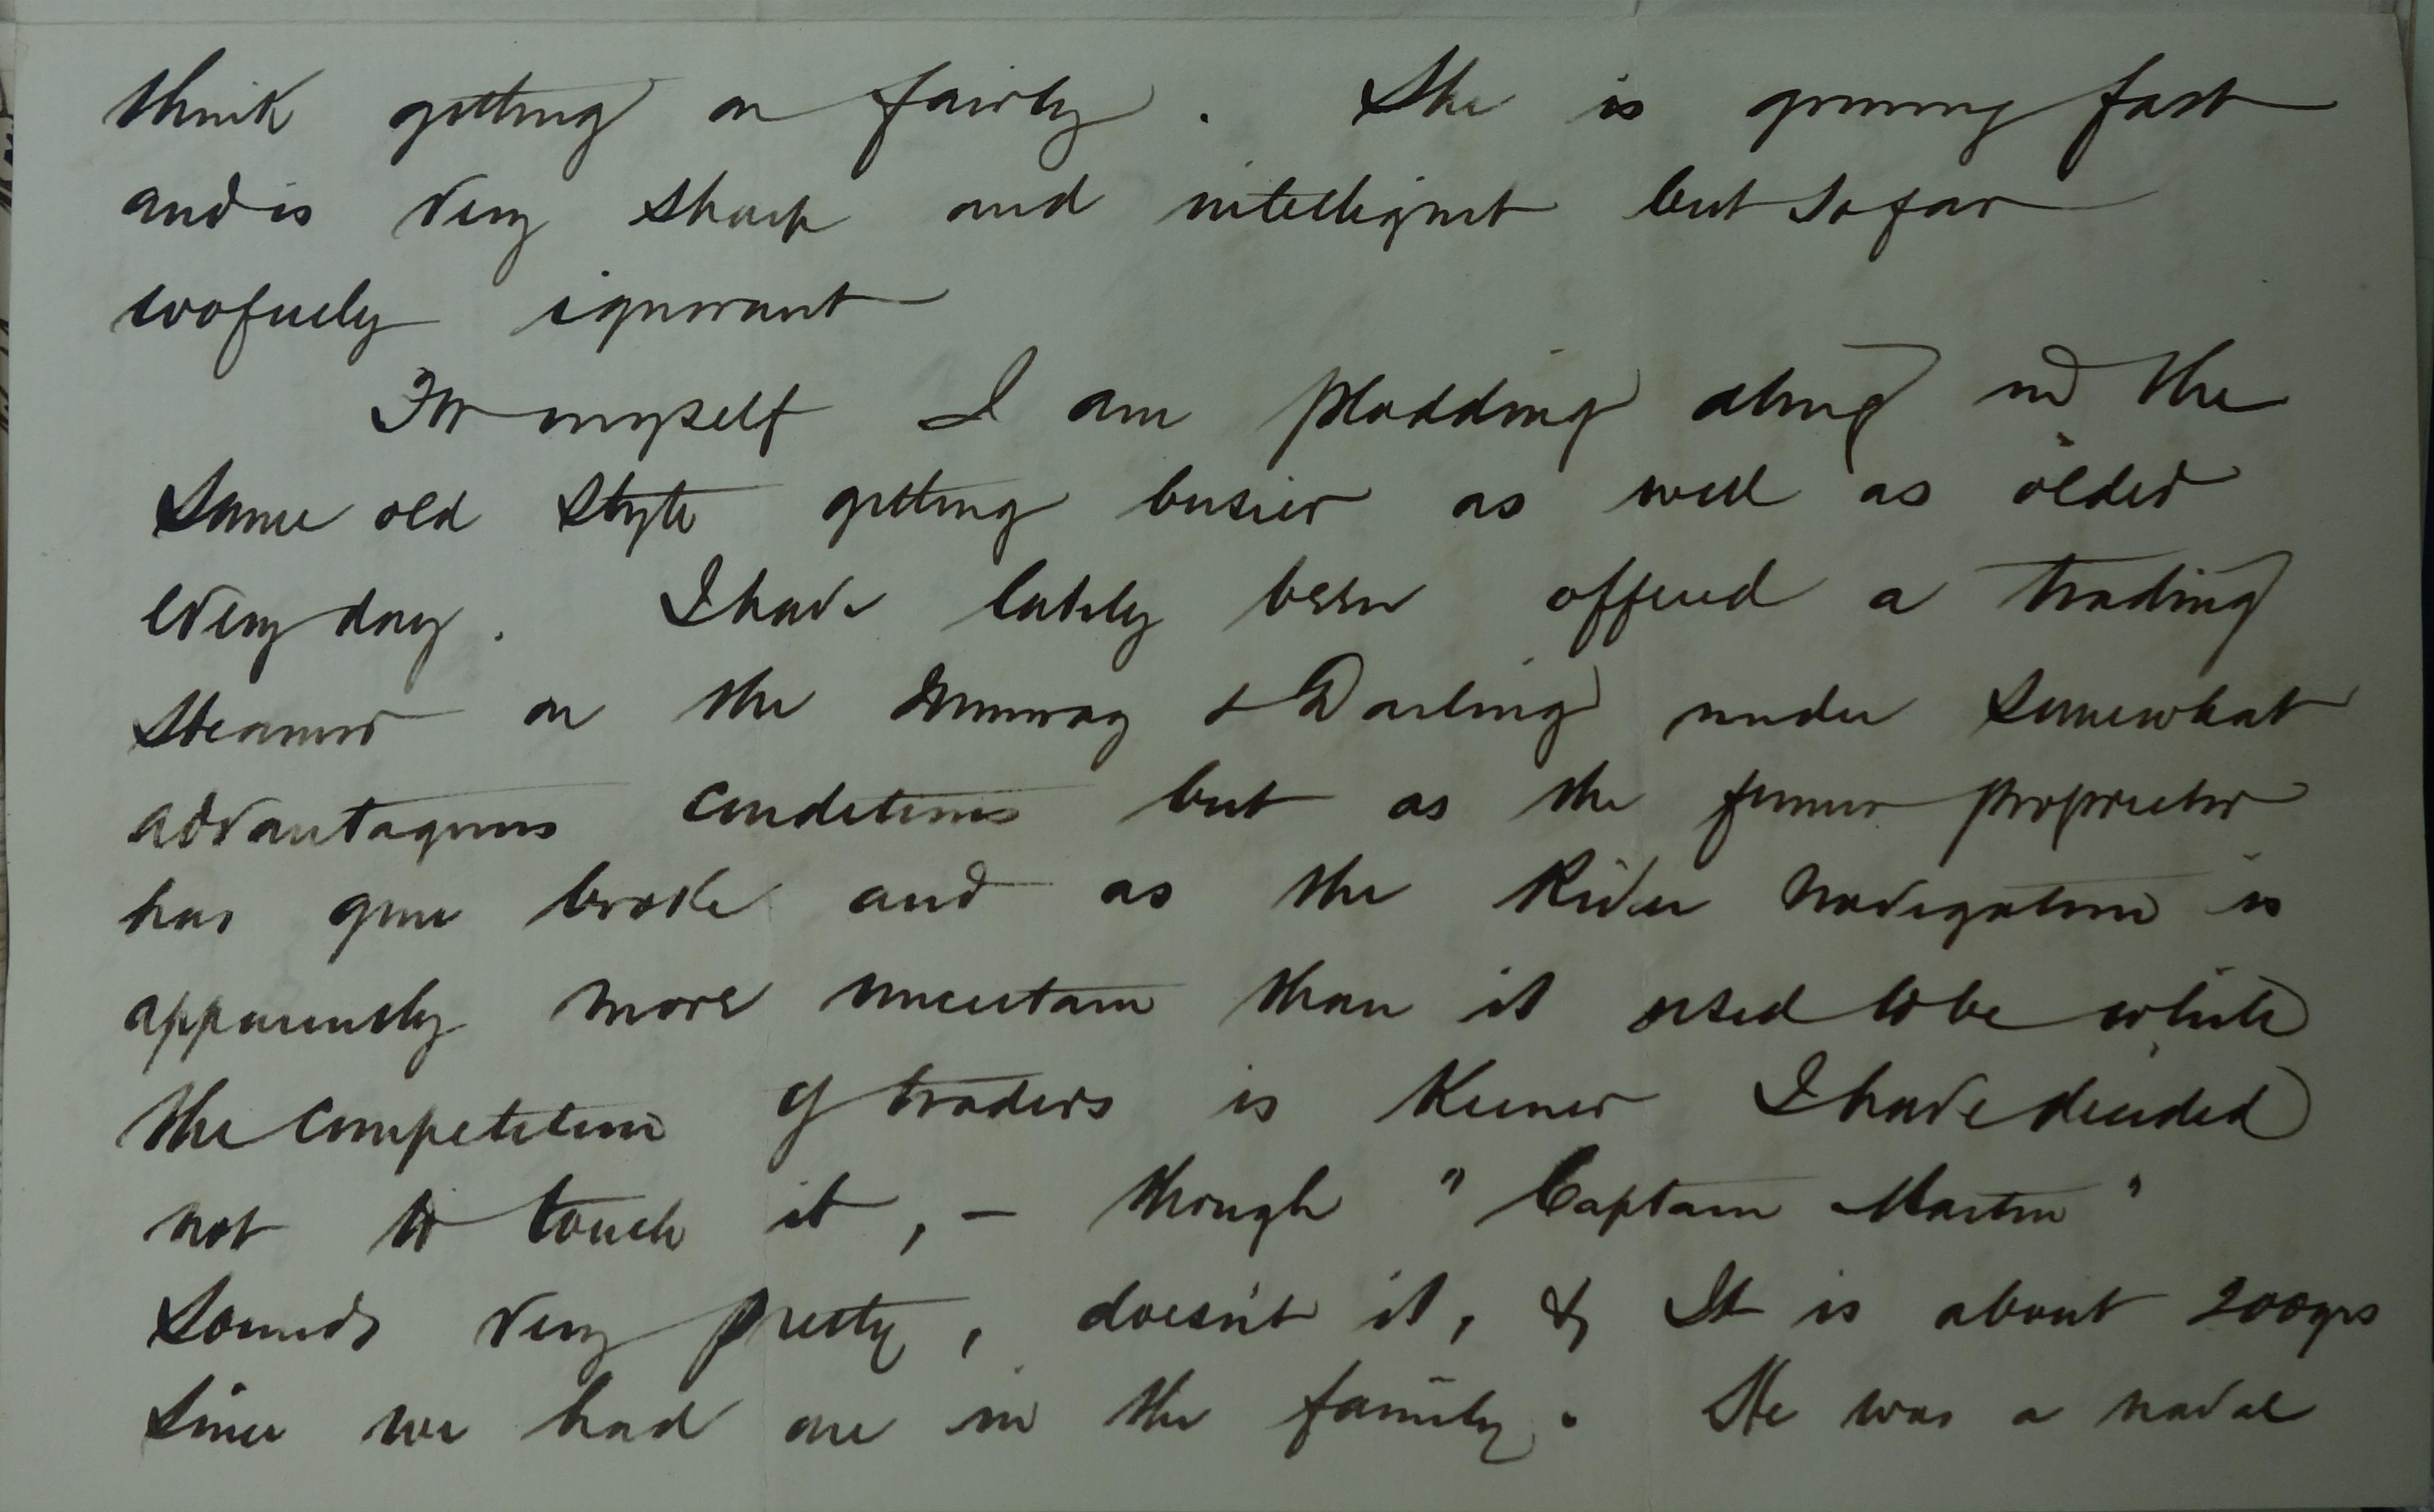 think getting on fairly. She is growing fast
and is very sharp and intelligent but so far
wofully ignorant
For myself I am plodding along in the
same old style getting busier as well as older
every day. I have lately been offered a trading
steamer on the Murray & Darling under somewhat
advantageous conditions but as the former proprietor
has gone broke and as the River Navigation is
apparently more uncertain than it used to be while
the competition of traders is keener I have decided
not to touch it, – though "Captain Martin"
sounds very pretty, doesn't it, & It is about 200 yrs
since we had one in the family. He was a naval